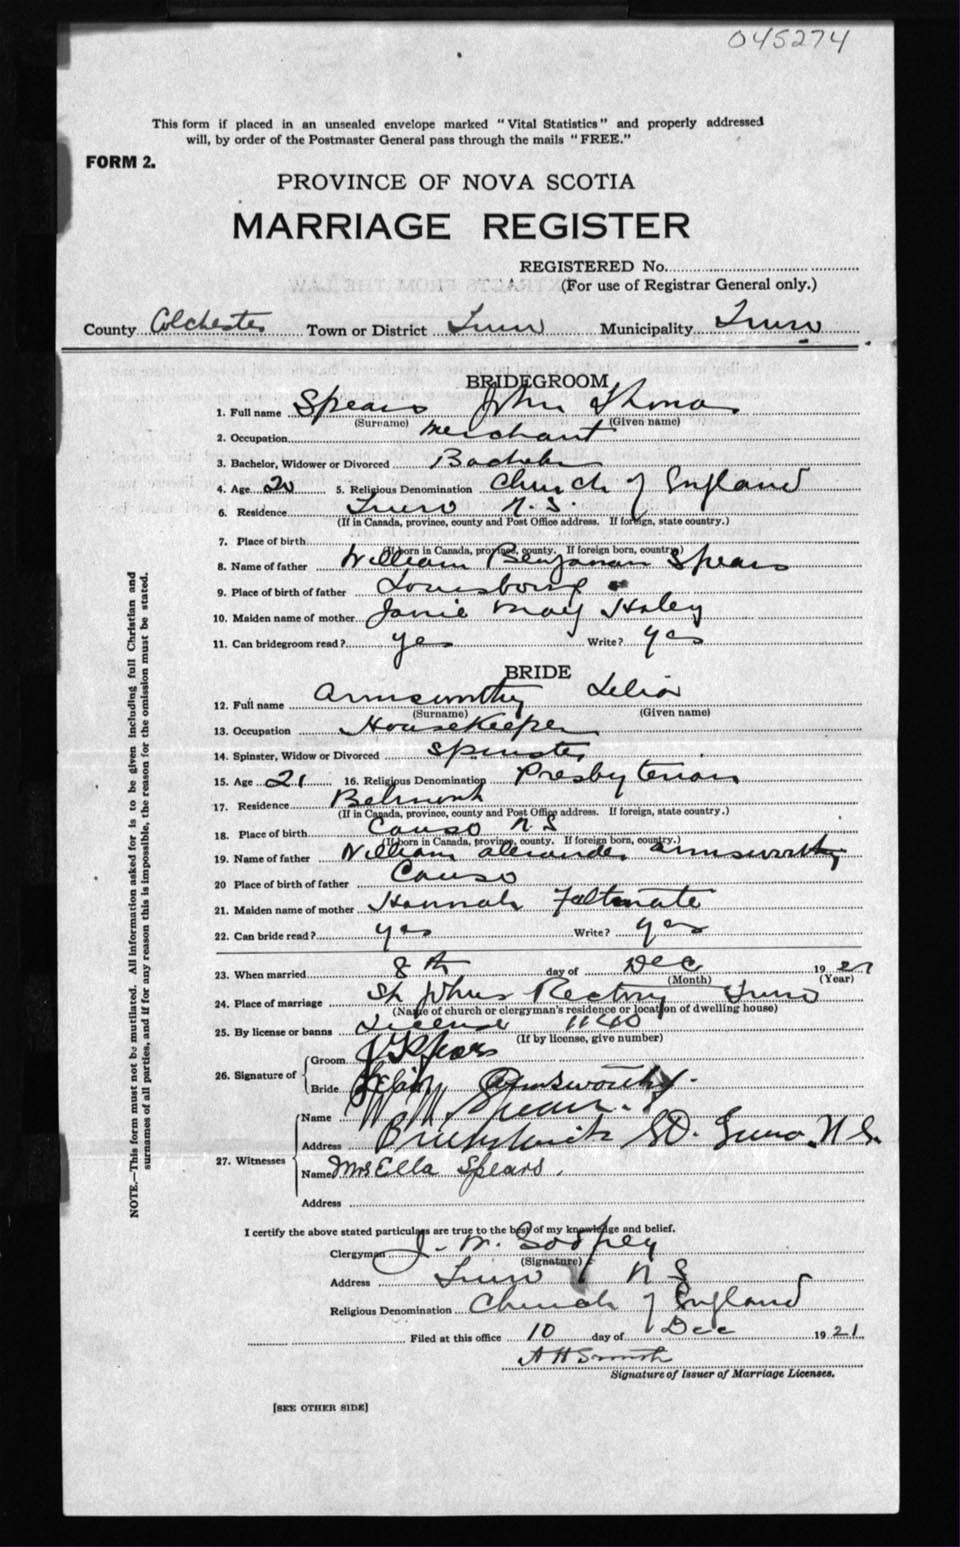 045274
This form if placed in an unsealed envelope marked "Vital Statistics" and properly addressed
will, by order of the Postmaster General pass through the mails "FREE."
FORM 2.
PROVINCE OF NOVA SCOTIA
MARRIAGE REGISTER
REGISTERED No.
(For use of Registrar General only.)
County Colchester Town or District Truro Municipality Truro
BRIDEGROOM
1. Full name Spears John Thomas
(Surname) (Given name)
2. Occupation merchant
3. Bachelor, Widower or Divorced Bachelor
4. Age 20 5. Religious Denomination Church of England
6. Residence Truro N.S.
(If in Canada, province, county and Post Office address. If foreign, state country.)
7. Place of birth
(If born in Canada, province, county. If foreign born, country)
8. Name of father William Benjaman Spears
9. Place of birth of father Louisbourg
10. Maiden name of mother Janie May Haley
11. Can bridegroom read? yes Write? yes
BRIDE
12. Full name Armsworthy Lelia
(Surname) (Given name)
13. Occupation HouseKeeper
14. Spinster, Widow or Divorced Spinster
15. Age 21 16. Religious Denomination Presbyterian
17. Residence Belmont
(If in Canada, province, county and Post Office address. If foreign, state country.)
18. Place of birth Canso N.S
(If born in Canada, province, county. If foreign born, country.)
19. Name of father William Alexander Armsworthy
20 Place of birth of father Canso
21. Maiden name of mother Hannah
22. Can bride read? yes Write? yes
23. When married 8th day of Dec 1921
(Month) (Year)
24. Place of marriage St Johns Rectory Truro
(Name of church or clergyman's residence or location of dwelling house)
25. By license or banns License
(If by license, give number)
26. Signature of Groom Spears
Bride Armsworthy
27. Witnesses Name Spears
Address St. Truro N.S.
Name Mrs Ella Spears.
Address
I certify the above stated particulars are true to the best of my knowledge and belief.
Clergyman J. W. Godfrey
(Signature)
Address Truro N S
Religious Denomination Church of England
Filed at this office 10 day of Dec 1921
A H Smith
Signature of Issuer of Marriage Licenses.
[SEE OTHER SIDE]
NOTE.—This form must not be mutilated. All information asked for is to be given including full Christian and
surnames of all parties, and if for any reason this is impossible, the reason for the omission must be stated.